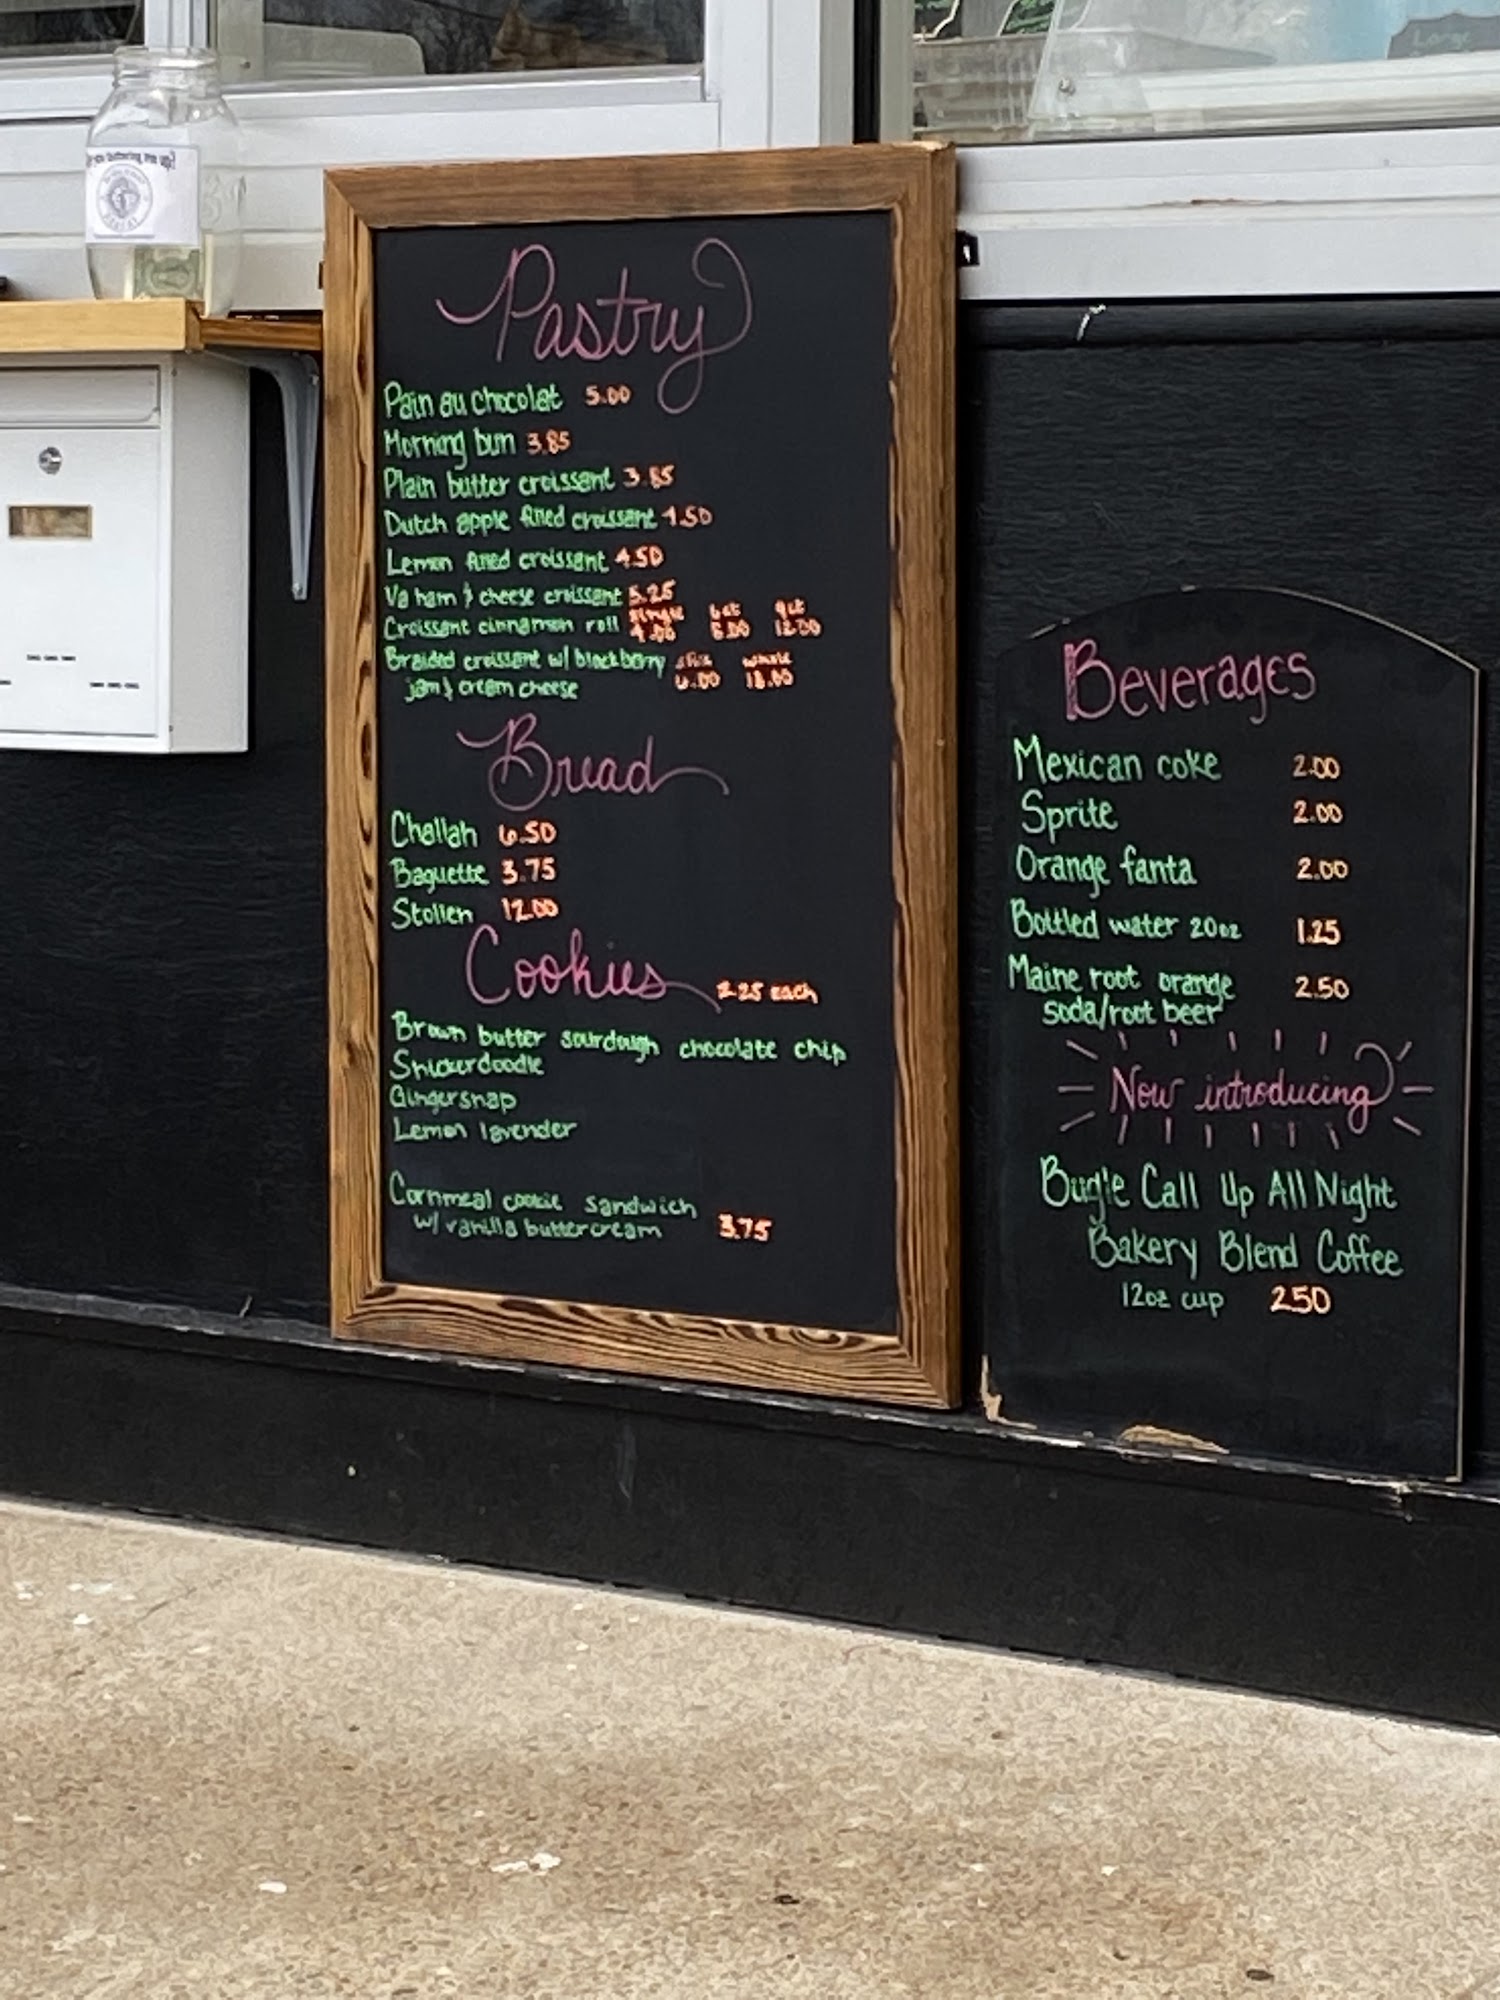 Pastry
Pain au chocolat 5.00
Morning bun 3.85
Plain butter croissant 3.85
Dutch apple filled croissant 4.50
Lemon filled croissant 4.50
Va ham & cheese croissant 5.25
single 6ct 9ct
Croissant cinnamon roll 4.00 8.00 12.00
Braided croissant w/ blackberry slice whole
jam & cream cheese 6.00 18.00
Bread
Challah 6.50
Baguette 3.75
Stollen 12.00
Cookies 2.25 each
Brown butter sourdough chocolate chip
Snickerdoodle
Gingersnap
Lemon lavender
Cornmeal cookie sandwich
w/ vanilla buttercream 3.75
Beverages
Mexican coke 2.00
Sprite 2.00
Orange fanta 2.00
Bottled water 20oz 1.25
Maine root orange 2.50
soda/root beer
Now introducing
Bugle Call Up All Night
Bakery Blend Coffee
12oz cup 2.50